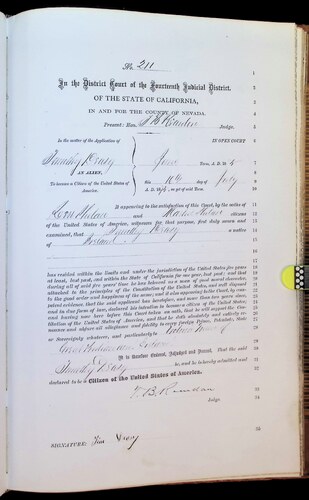 No. 211
In the District Court of the Fourteenth Judicial District,
OF THE STATE OF CALIFORNIA,
IN AND FOR THE COUNTY OF NEVADA.
Present: Hon. Judge.
In the matter of the Application of
IN OPEN COURT
Timothy June Term, A. D. 187
AN ALIEN, this 16th day of July
To become a Citizen of the United States of America. A. D. 187 , as per order filed Term.
It appearing to the satisfaction of this Court, by the oaths of
and citizens
of the United States of America, witnesses for that purpose, first duly sworn and
examined, that Timothy a native
of Ireland
has resided within the limits and under the jurisdiction of the United States five years
at least, last past, and within the State of California for one year last past; and that
during all of said five years' time he has behaved as a man of good moral character,
attached to the principles of the Constitution of the United States, and well disposed
to the good order and happiness of the same; and it also appearing to the Court, by com-
petent evidence, that the said applicant has heretofore, and more than two years since,
and in due form of law, declared his intention to become a citizen of the United States,
and having now here before this Court taken an oath, that he will support the Con-
stitution of the United States of America, and that he doth absolutely and entirely re-
nounce and abjure all allegiance and fidelity to every foreign Prince, Potentate, State
or Sovereignty whatever, and particularly to Victoria Queen of
Great Britain and Ireland
It is therefore Ordered, Adjudged and Decreed, That the said
Timothy be, and he is hereby admitted and
declared to be a Citizen of the United States of America.
Judge.
SIGNATURE: Tim